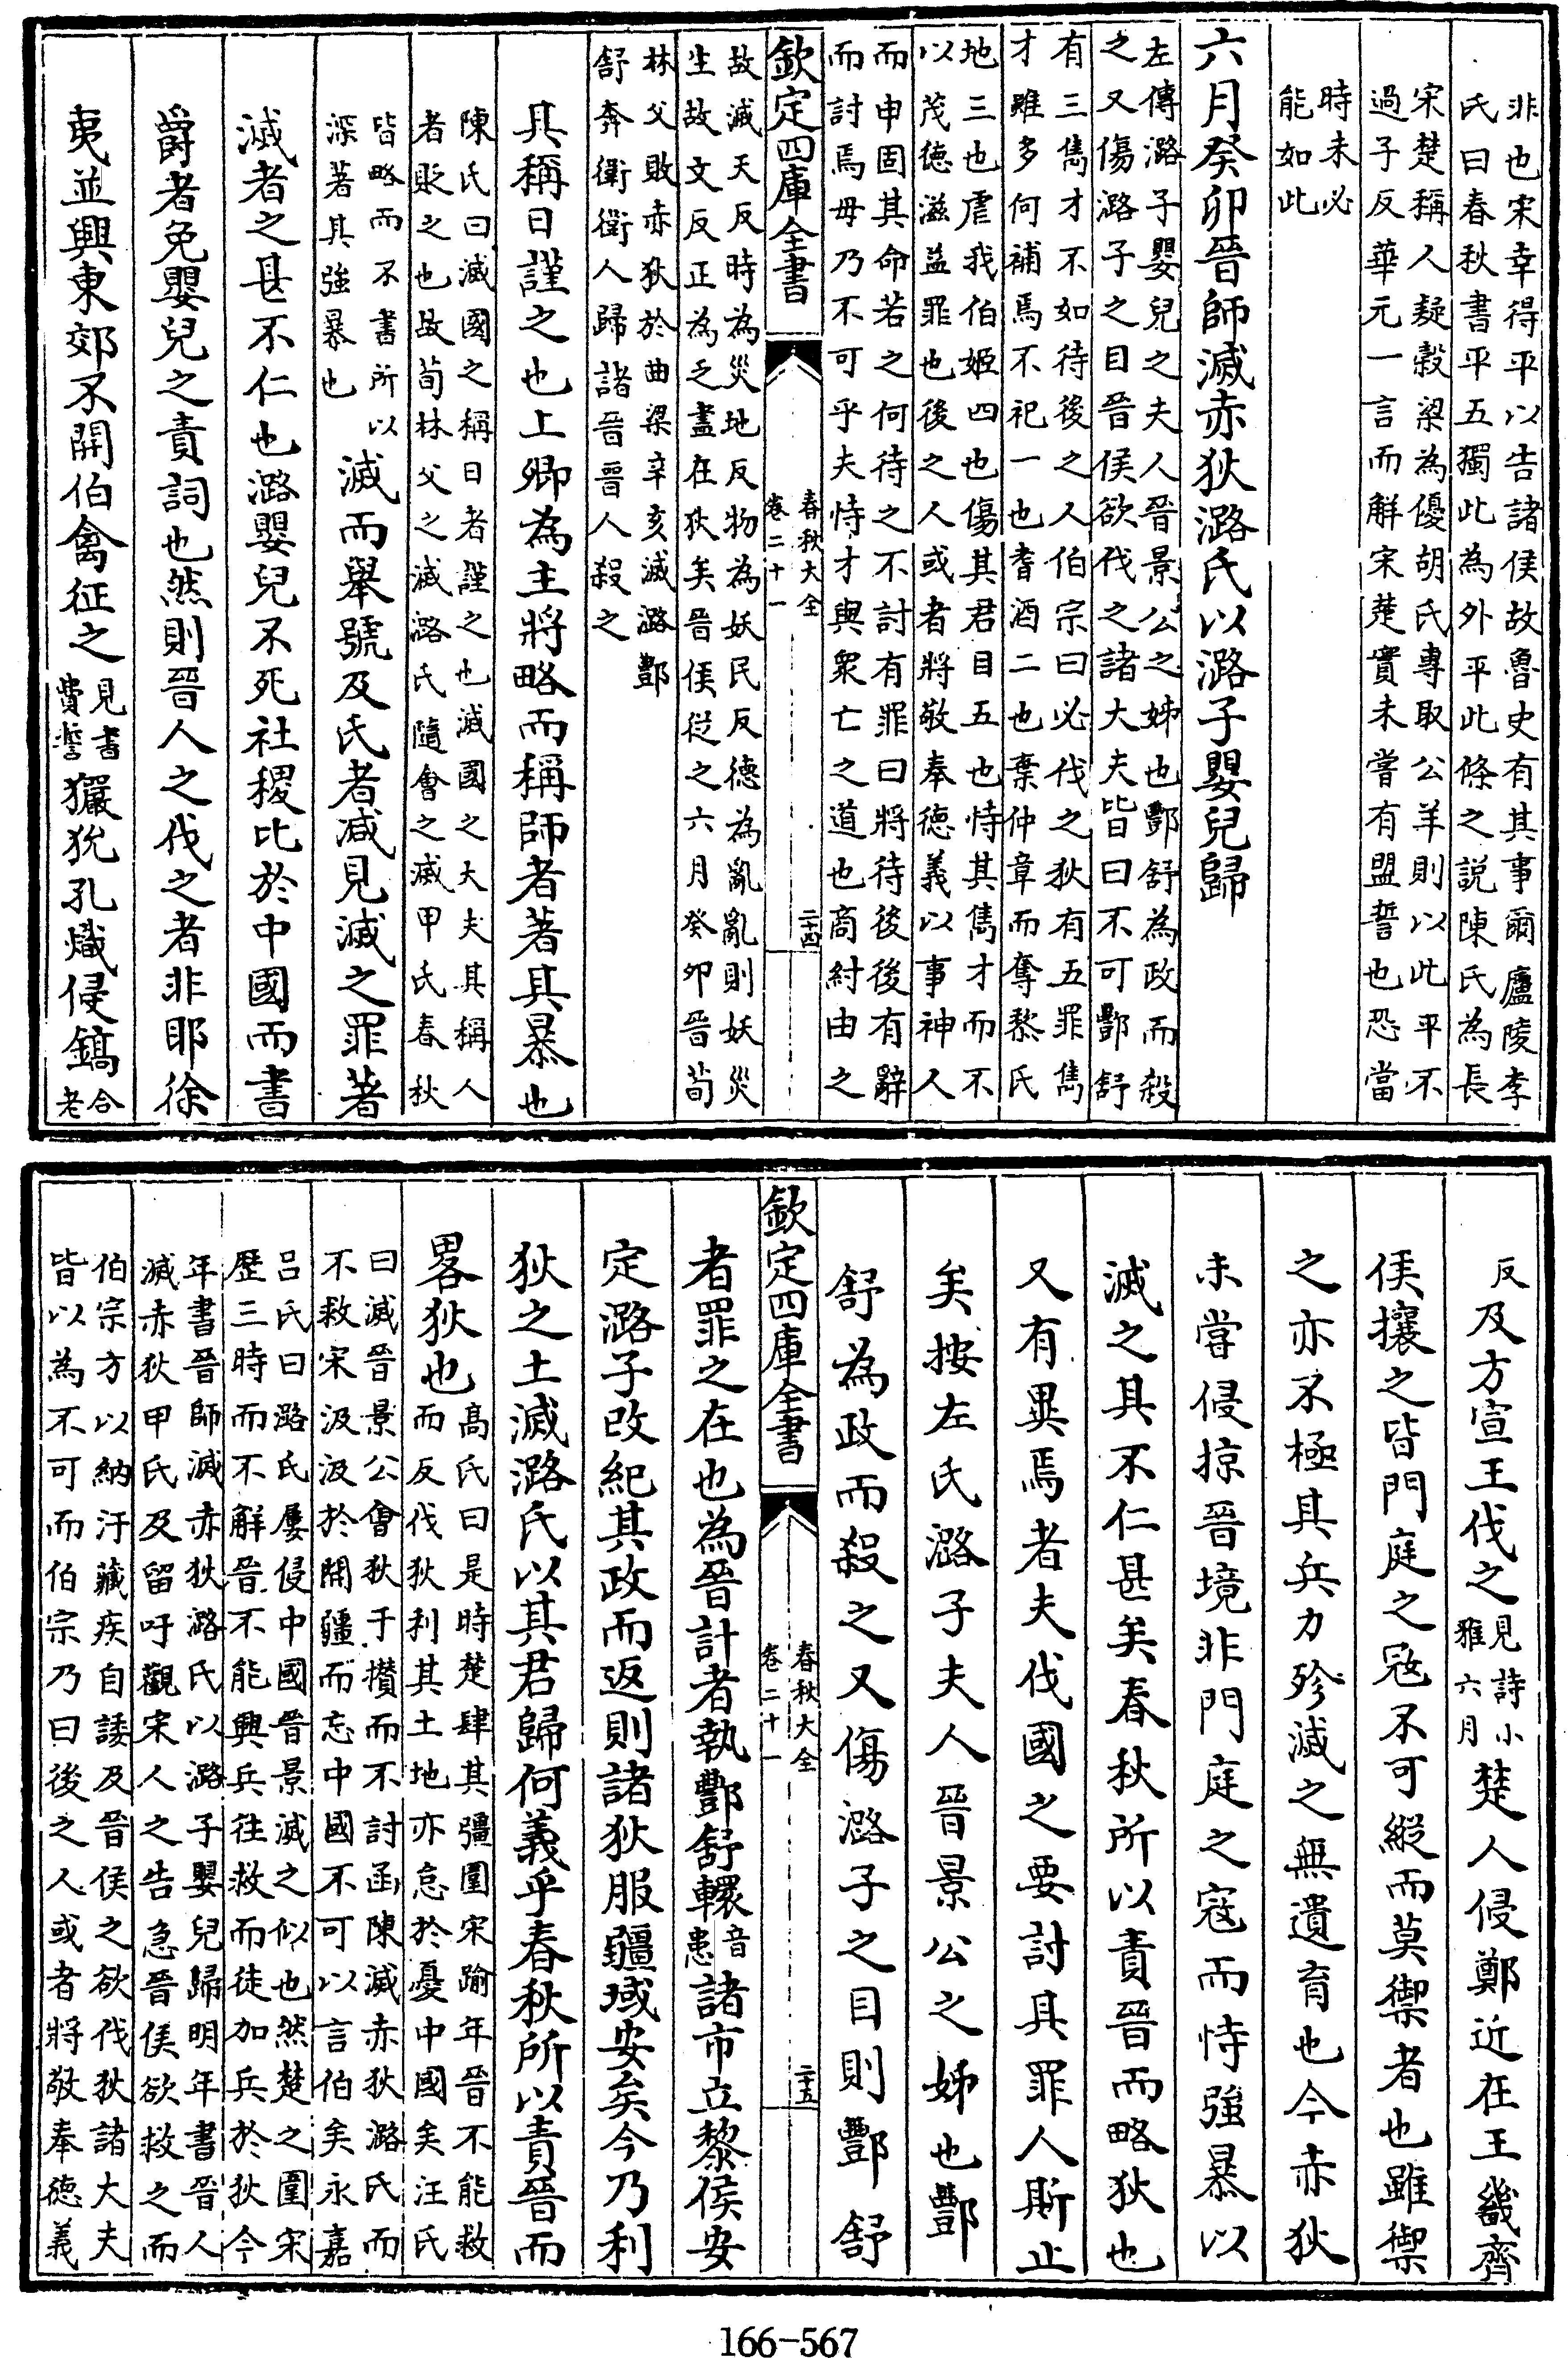 非也宋幸得平以告諸侯故魯史有其事爾廬陵李
氏曰春秋書平五獨此為外平此條之說陳氏為長
宋楚稱人疑榖梁為優胡氏專取公羊則以此平不
過子反華元一言而解宋楚實未嘗有盟誓也恐當
時未必
能如此
六月癸卯晉師滅赤狄潞氏以潞子嬰兒歸
左傳潞子嬰兒之夫人晉景公之姊也酆舒為政而殺
之又傷潞子之目晉侯欲伐之諸大夫皆曰不可酆舒
有三雋才不如待後之人伯宗曰必伐之狄有五罪雋
才雖多何補焉不祀一也耆酒二也棄仲章而奪黎氏
地三也虐我伯姬四也傷其君目五也恃其雋才而不
以茂德滋益罪也後之人或者將敬奉德義以事神人
而申固其命若之何待之不討有罪曰將待後後有辭
而討焉毋乃不可乎夫恃才與衆亡之道也商紂由之
欽定四庫全書
春秋大全
卷二十一
二十四
故滅天反時為災地反物為妖民反德為亂亂則妖災
生故文反正為乏盡在狄矣晉侯從之六月癸卯晉荀
林父敗赤狄於曲梁辛亥滅潞酆
舒奔衛衛人歸諸晉晉人殺之
其稱日謹之也上卿為主將略而稱師者著其暴也
陳氏曰滅國之稱日者謹之也滅國之大夫其稱人
者貶之也故荀林父之滅潞氏隨會之滅甲氏春秋
皆略而不書所以
深著其強暴也
滅而舉號及氏者减見滅之罪著
滅者之甚不仁也潞嬰兒不死社稷比於中國而書
爵者免嬰兒之責詞也然則晉人之伐之者非耶徐
夷並興東郊不開伯禽征之
見書
費誓
玁狁孔熾侵鎬
合
老
反
及方宣王伐之
見詩小
雅六月
楚人侵鄭近在王畿齊
侯攘之皆門庭之冦不可縱而莫禦者也雖禦
之亦不極其兵力殄滅之無遺育也今赤狄
未嘗侵掠晉境非門庭之寇而恃強暴以
滅之其不仁甚矣春秋所以責晉而略狄也
又有異焉者夫伐國之要討其罪人斯止
矣按左氏潞子夫人晉景公之姊也酆
舒為政而殺之又傷潞子之目則酆舒
欽定四庫全書
春秋大全
卷二十一
二十五
者罪之在也為晉計者執酆舒轘
音
患
諸市立黎侯安
定潞子改紀其政而返則諸狄服疆域安矣今乃利
狄之土滅潞氏以其君歸何義乎春秋所以責晉而
畧狄也
高氏曰是時楚肆其彊圍宋踰年晉不能救
而反伐狄利其土地亦怠於憂中國矣汪氏
曰滅晉景公會狄于攢而不討函陳滅赤狄潞氏而
不救宋汲汲於開疆而忘中國不可以言伯矣永嘉
吕氏曰潞氏屢侵中國晉景滅之似也然楚之圍宋
歷三時而不解晉不能興兵往救而徒加兵於狄今
年書晉師滅赤狄潞氏以潞子嬰兒歸明年書晉人
滅赤狄甲氏及留吁觀宋人之告急晉侯欲救之而
伯宗方以納汙藏疾自諉及晉侯之欲伐狄諸大夫
皆以為不可而伯宗乃曰後之人或者將敬奉德義
166-567